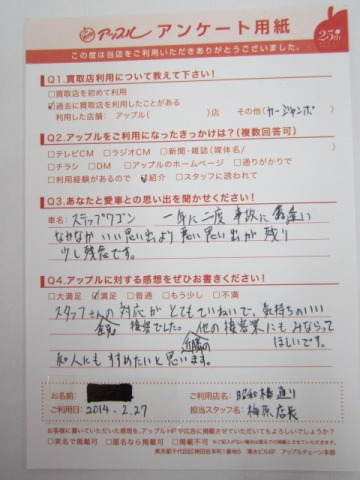 アップル アンケート用紙
25th
この度は当店をご利用いただきありがとうございました。
Q1.買取店利用について教えて下さい！
□買取店を初めて利用
☑過去に買取店を利用したことがある
利用した店舗：アップル（　　　）店　その他（カージャンボ）
Q2.アップルをご利用になったきっかけは？（複数回答可）
□テレビCM　□ラジオCM　□新聞・雑誌（媒体名/　　　）
□チラシ　□DM　□アップルのホームページ　□通りがかりで
□利用経験があるので　☑紹介　□スタッフに誘われて
Q3.あなたと愛車との思い出を聞かせください！
車名：ステップワゴン　一年に二度事故に
なかなかいい思い出より悪い思い出が残り
少し残念です。
Q4.アップルに対する感想をぜひお書きください！
□大満足　☑満足　□普通　□もう少し　□不満
スタッフさんの対応がとてもていねいで、気持ちがいい
接客でした。他の接客業にもみならって
ほしいです。
知人にもすすめたいと思います。
お名前：
ご利用日：2014.2.27
ご利用店名：昭和橋通り
担当スタッフ名：梅原店長
お客様に書いていただいた感想を、アップルHPや広告に掲載させていただいてもよろしいでしょうか？
□実名で掲載可　□匿名なら掲載可　□掲載不可
東京都千代田区神田松本町1番地5　清水ビル6F　アップルチェーン本部